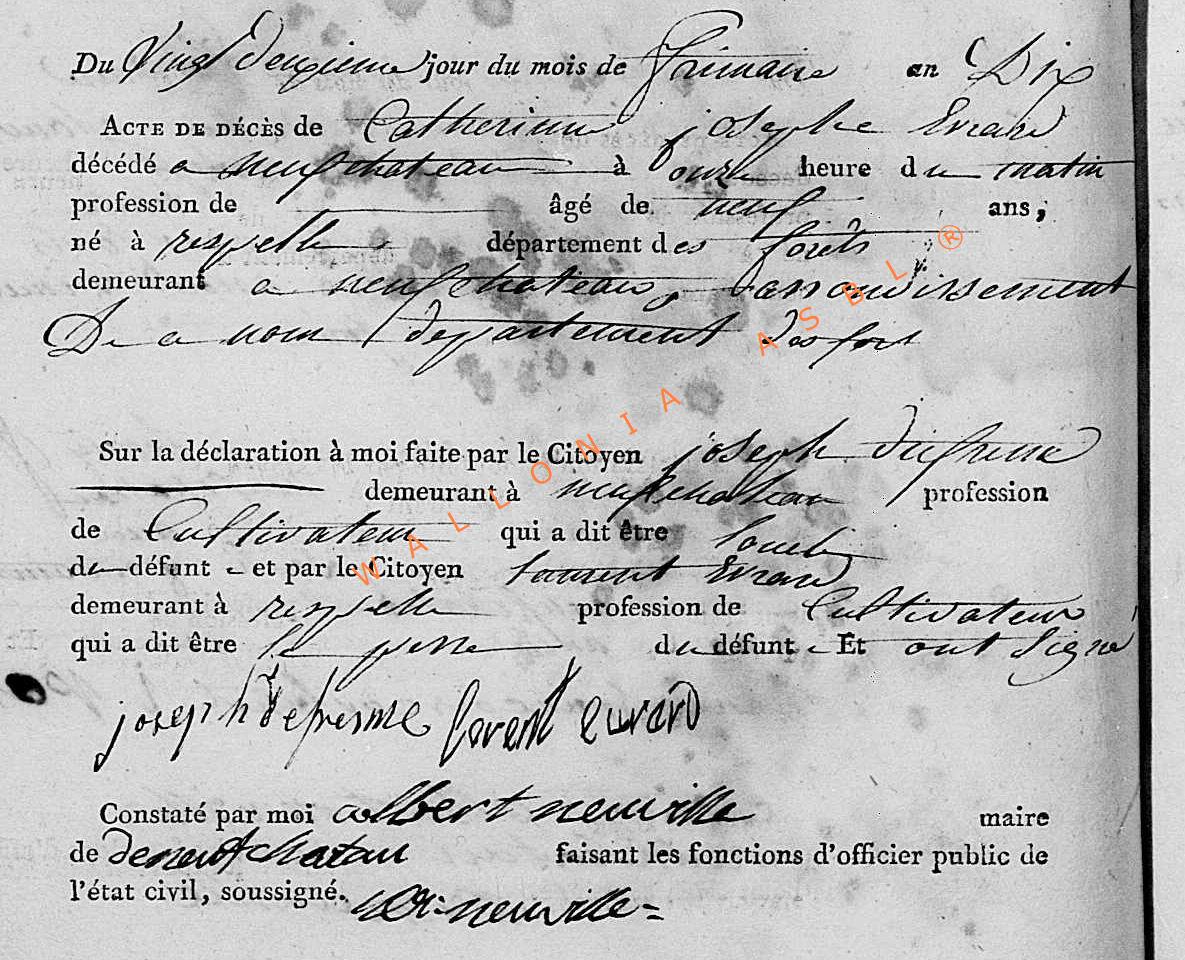 Du Vingt deuxieme jour du mois de frimaire an Dix
ACTE DE DÉCÈS de Catherinne josephe Evrard
décédé a neufchateau à onze heure du matin
profession de âgé de neuf ans,
né à respelle département des forêts
demeurant a neufchateau, arrondissement
De a nom departement des fort
Sur la déclaration à moi faite par le Citoyen joseph dufresne
demeurant à neufchateau profession
de Cultivateur qui a dit être
du défunt et par le Citoyen laurent Evrard
demeurant à respelle profession de Cultivateur
qui a dit être le perre du défunt Et ont signé
joseph defresne lorent evrard
Constaté par moi albert neuville maire
de deneufchatau faisant les fonctions d'officier public de
l'état civil, soussigné. neuville
WALLONIA ASBL ®